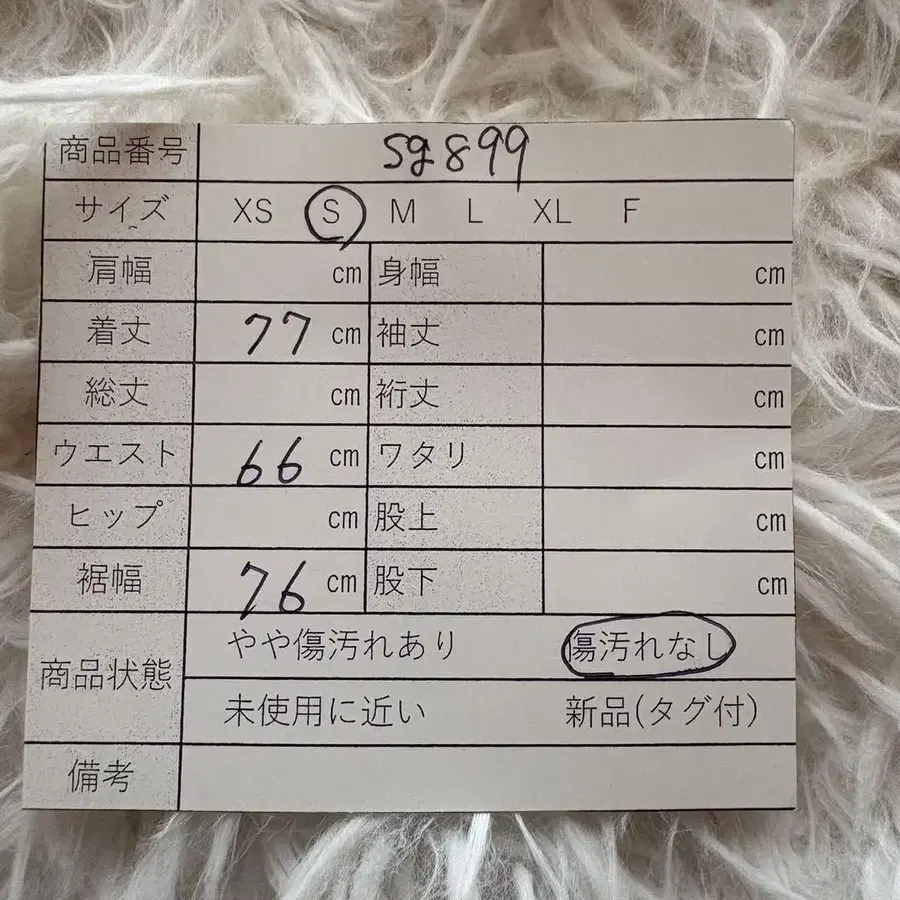 商品番号 sg899
サイズ XS S M L XL F
肩幅 cm 身幅 cm
着丈 77 cm 袖丈 cm
総丈 cm 裄丈 cm
ウエスト 66 cm ワタリ cm
ヒップ cm 股上 cm
裾幅 76 cm 股下 cm
商品状態 やや傷汚れあり 傷汚れなし
未使用に近い 新品(タグ付)
備考